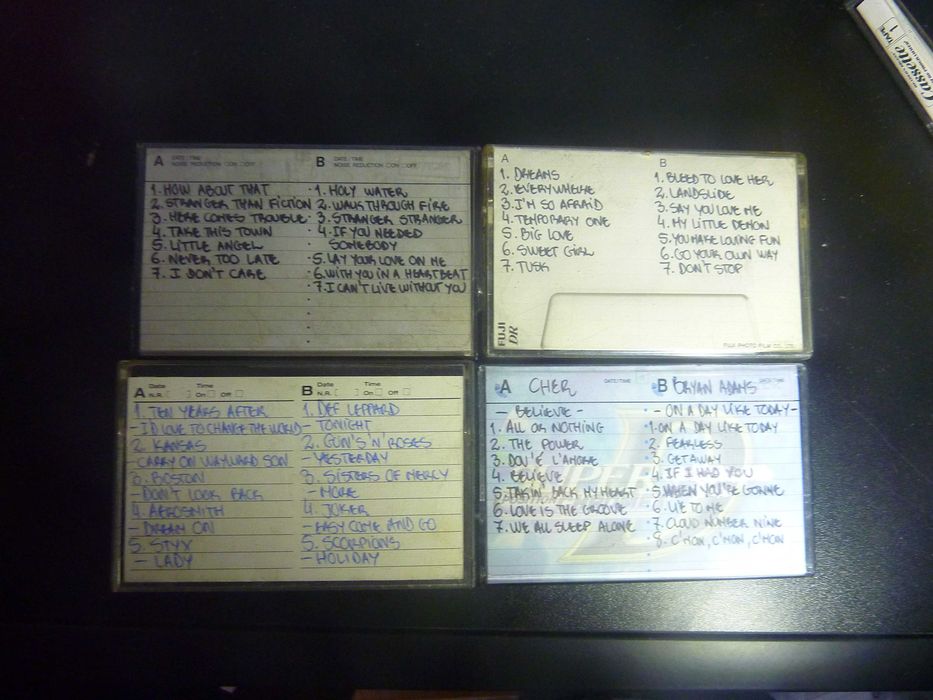 Cassette
TAPE 1
A DATE/TIME
NOISE REDUCTION □ON □OFF
1. HOW ABOUT THAT
2. STRANGER THAN FICTION
3. HERE COMES TROUBLE
4. TAKE THIS TOWN
5. LITTLE ANGEL
6. NEVER TOO LATE
7. I DON'T CARE
B DATE/TIME
NOISE REDUCTION □ON □OFF
1. HOLY WATER
2. WALKS THROUGH FIRE
3. STRANGER STRANGER
4. IF YOU NEEDED
SOMEBODY
5. LAY YOUR LOVE ON ME
6. WITH YOU IN A HEARTBEAT
7. I CAN'T LIVE WITHOUT YOU
A
1. DREAMS
2. EVERYWHERE
3. I'M SO AFRAID
4. TEMPORARY ONE
5. BIG LOVE
6. SWEET GIRL
7. TUSK
B
1. BLEED TO LOVE HER
2. LANDSLIDE
3. SAY YOU LOVE ME
4. MY LITTLE DEMON
5. YOU MAKE LOVING FUN
6. GO YOUR OWN WAY
7. DON'T STOP
FUJI DR
FUJI PHOTO FILM CO., LTD.
A Date Time
N.R. [ ] On □ Off □
1. TEN YEARS AFTER
- I'D LOVE TO CHANGE THE WORLD
2. KANSAS
- CARRY ON WAYWARD SON
3. BOSTON
- DON'T LOOK BACK
4. AEROSMITH
- DREAM ON
5. STYX
- LADY
B Date Time
N.R. [ ] On □ Off □
1. DEF LEPPARD
- TONIGHT
2. GUN'S 'N' ROSES
- YESTERDAY
3. SISTERS OF MERCY
- MORE
4. JOKER
- EASY COME AND GO
5. SCORPIONS
- HOLIDAY
A CHER DATE/TIME
- BELIEVE -
1. ALL OR NOTHING
2. THE POWER
3. DOV'É L'AMORE
4. BELIEVE
5. TAKIN' BACK MY HEART
6. LOVE IS THE GROOVE
7. WE ALL SLEEP ALONE
B BRYAN ADAMS DATE/TIME
- ON A DAY LIKE TODAY -
1. ON A DAY LIKE TODAY
2. FEARLESS
3. GETAWAY
4. IF I HAD YOU
5. WHEN YOU'RE GONNE
6. LIE TO ME
7. CLOUD NUMBER NINE
8. C'MON, C'MON, C'MON